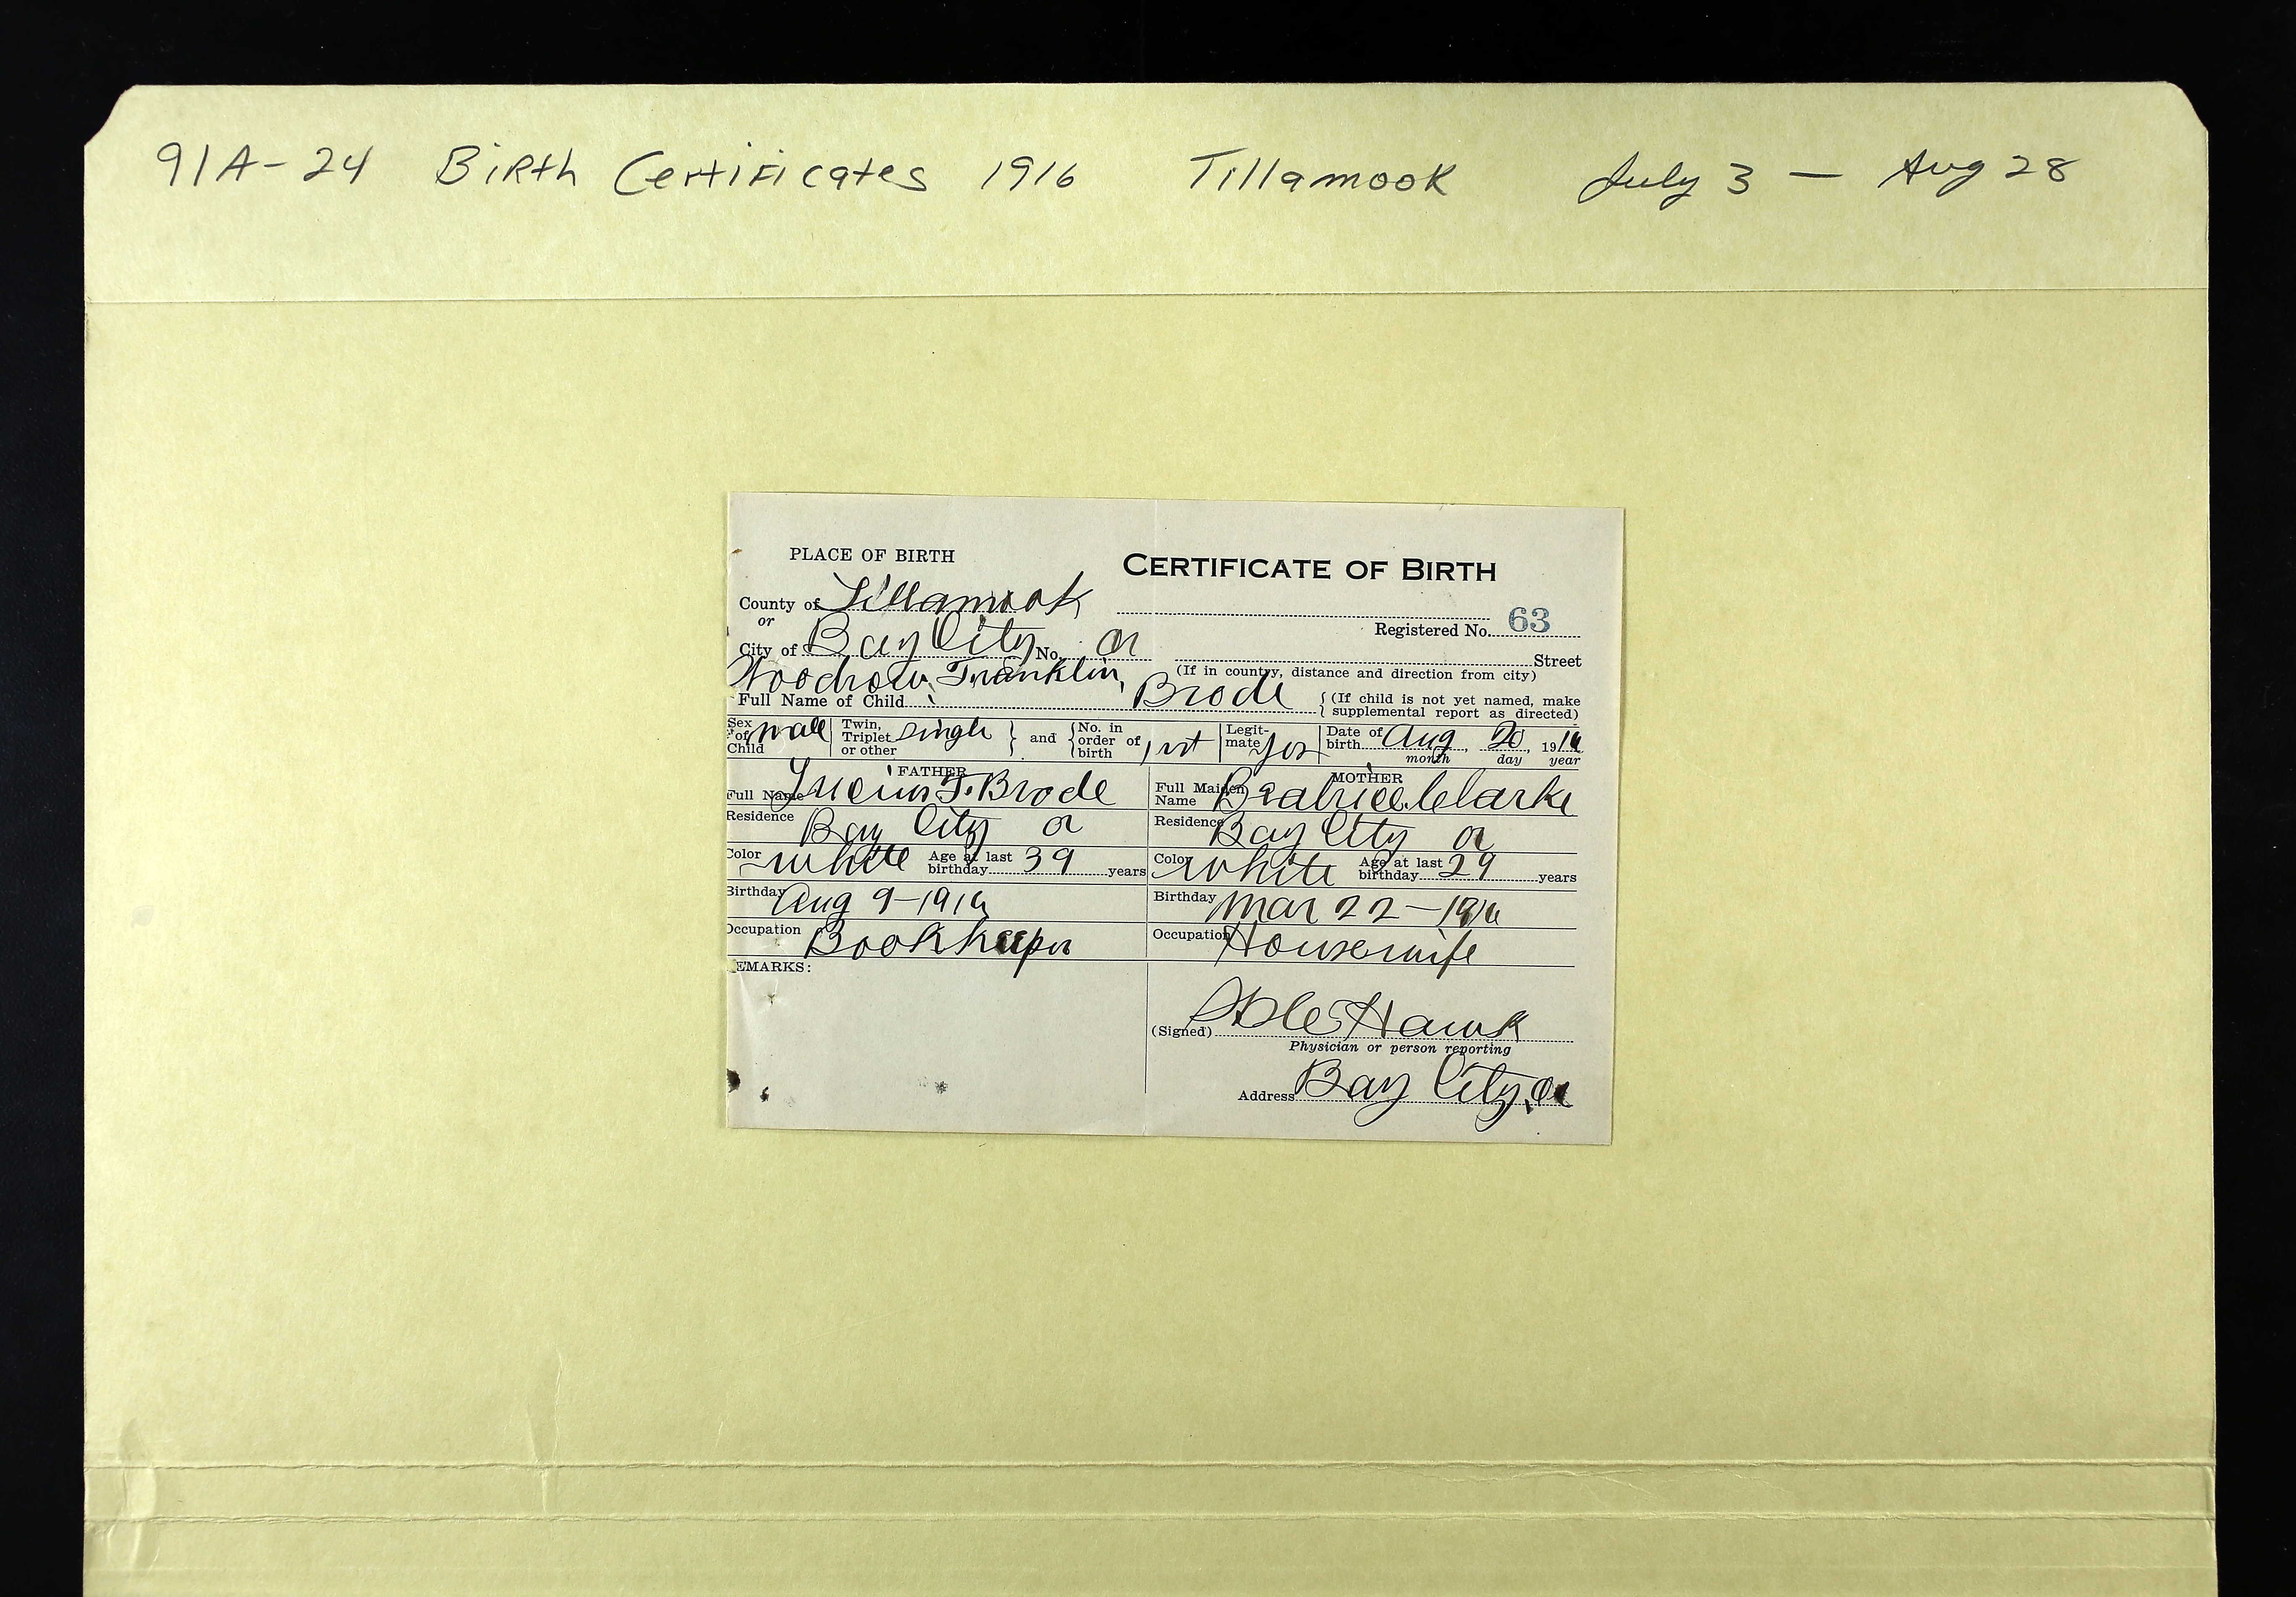 91A-24 Birth Certificates 1916 Tillamook July 3 — Aug 28
PLACE OF BIRTH
CERTIFICATE OF BIRTH
County of Tillamook
or
Registered No. 63
City of Bay City No. Or Street
(If in country, distance and direction from city)
Woodrow Franklin
Full Name of Child Brode {(If child is not yet named, make supplemental report as directed)
Sex of Child male Twin, Triplet or other single } and {No. in order of birth 1st Legitimate yes Date of birth Aug 20, 1916
month day year
FATHER
Full Name Lucius T. Brode
Residence Bay City Or
Color White Age at last birthday 39 years
Birthday Aug 9-1916
Occupation Bookkeeper
MOTHER
Full Maiden Name Beatrice Clarke
Residence Bay City Or
Color White Age at last birthday 29 years
Birthday Mar 22-1916
Occupation Housewife
EMARKS:
(Signed) Hawk
Physician or person reporting
Address Bay City, Or